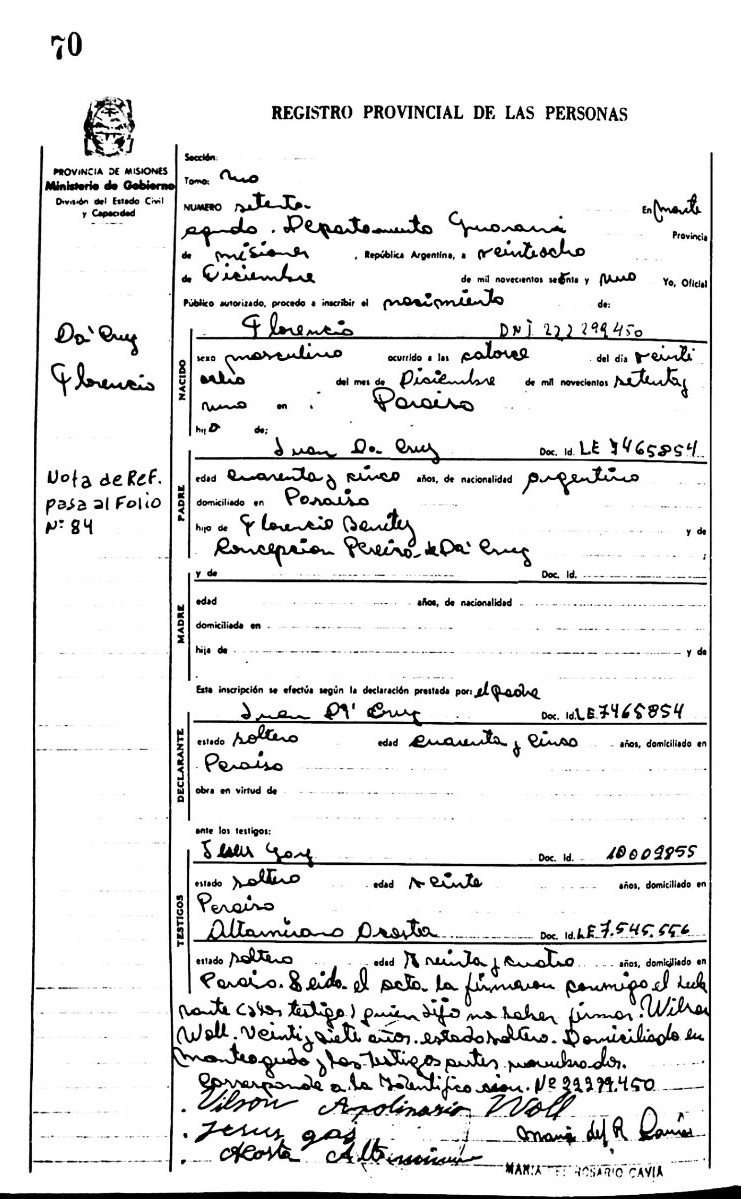 70
REGISTRO PROVINCIAL DE LAS PERSONAS
PROVINCIA DE MISIONES
Ministerio de Gobierno
División del Estado Civil
y Capacidad
Sección:
Tomo: uno
NUMERO setenta En Monte
agudo. Departamento Guaraní Provincia
de misiones , República Argentina, a veintiocho
de Diciembre de mil novecientos setenta y uno Yo, Oficial
Público autorizado, procedo a inscribir el nacimiento de:
Da' Cruz
Florencio
NACIDO
Florencio DNI 222299450
sexo masculino ocurrido a las catorce del día veinti
ocho del mes de Diciembre de mil novecientos setenta y
uno en Paraiso
hijo de:
Nota de Ref.
pasa al Folio
Nº 84
PADRE
Juan Da Cruz Doc. Id. LE 7465854
edad cuarenta y cinco años, de nacionalidad argentino
domiciliado en Paraiso
hijo de Florencio Benitez y de
Concepcion Pereira de Da' Cruz
MADRE
y de Doc. Id.
edad años, de nacionalidad
domiciliada en
hija de y de
Esta inscripción se efectúa según la declaración prestada por: el padre
DECLARANTE
Juan Da' Cruz Doc. Id. LE 7465854
estado soltero edad cuarenta y cinco años, domiciliado en
Paraiso
obra en virtud de
ante los testigos:
TESTIGOS
Jesus Doc. Id. 10009855
estado soltero edad veinte años, domiciliado en
Paraiso
Altamirano Doc. Id. LE 7.545.556
estado soltero edad treinta y cuatro años, domiciliado en
Paraiso. Leida el acta la firmaron conmigo el
quien dijo no saber firmar. Wilson
Woll. Veinti y siete años. estado soltero. Domiciliado en
monteagudo y los testigos antes nombrados.
Corresponde a la Identificacion. Nº 22299.450
Vilson Apolinario Woll
Jesus
Acosta
Maria del R
MARIA DEL ROSARIO CAVIA